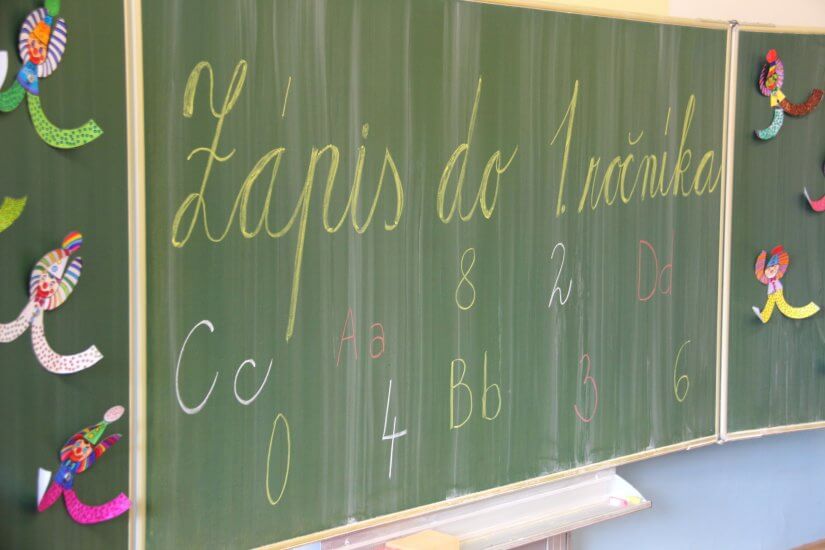 Zápis do 1. ročníka
8 2 Dd
Cc Aa
0 4 Bb 3 6